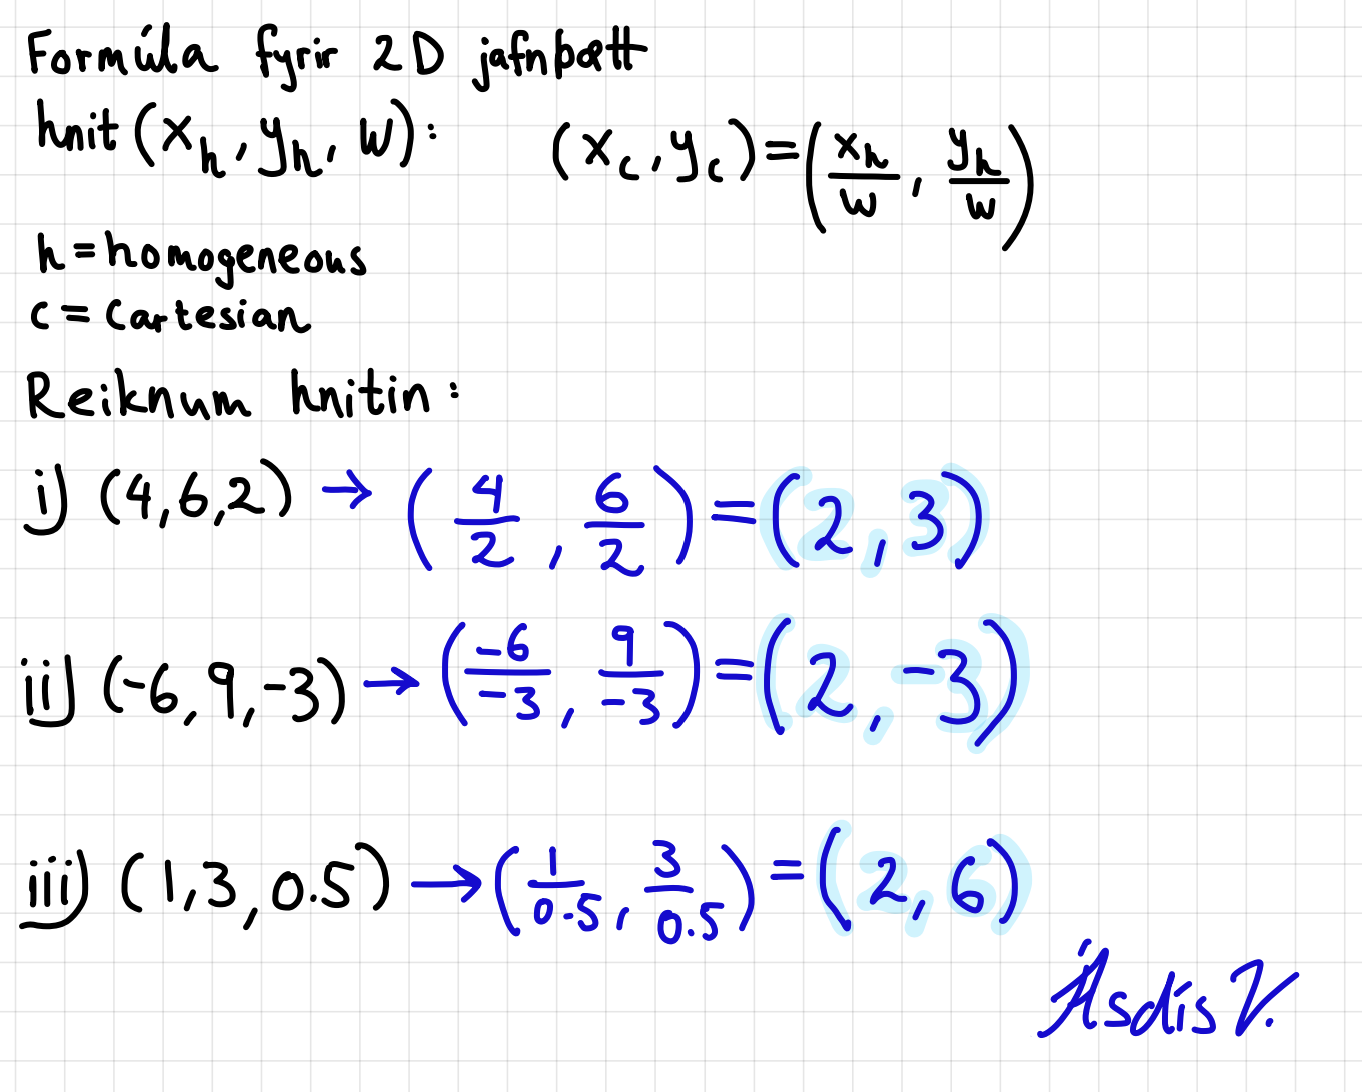 Formúla fyrir 2D jafnþætt
hnit (x_h, y_h, w): (x_c, y_c) = (x_h/w, y_h/w)
h = homogeneous
c = cartesian
Reiknum hnitin:
i) (4,6,2) → (4/2, 6/2) = (2, 3)
ii) (-6, 9, -3) → (-6/-3, 9/-3) = (2, -3)
iii) (1,3,0.5) → (1/0.5, 3/0.5) = (2, 6)
Ásdís V.